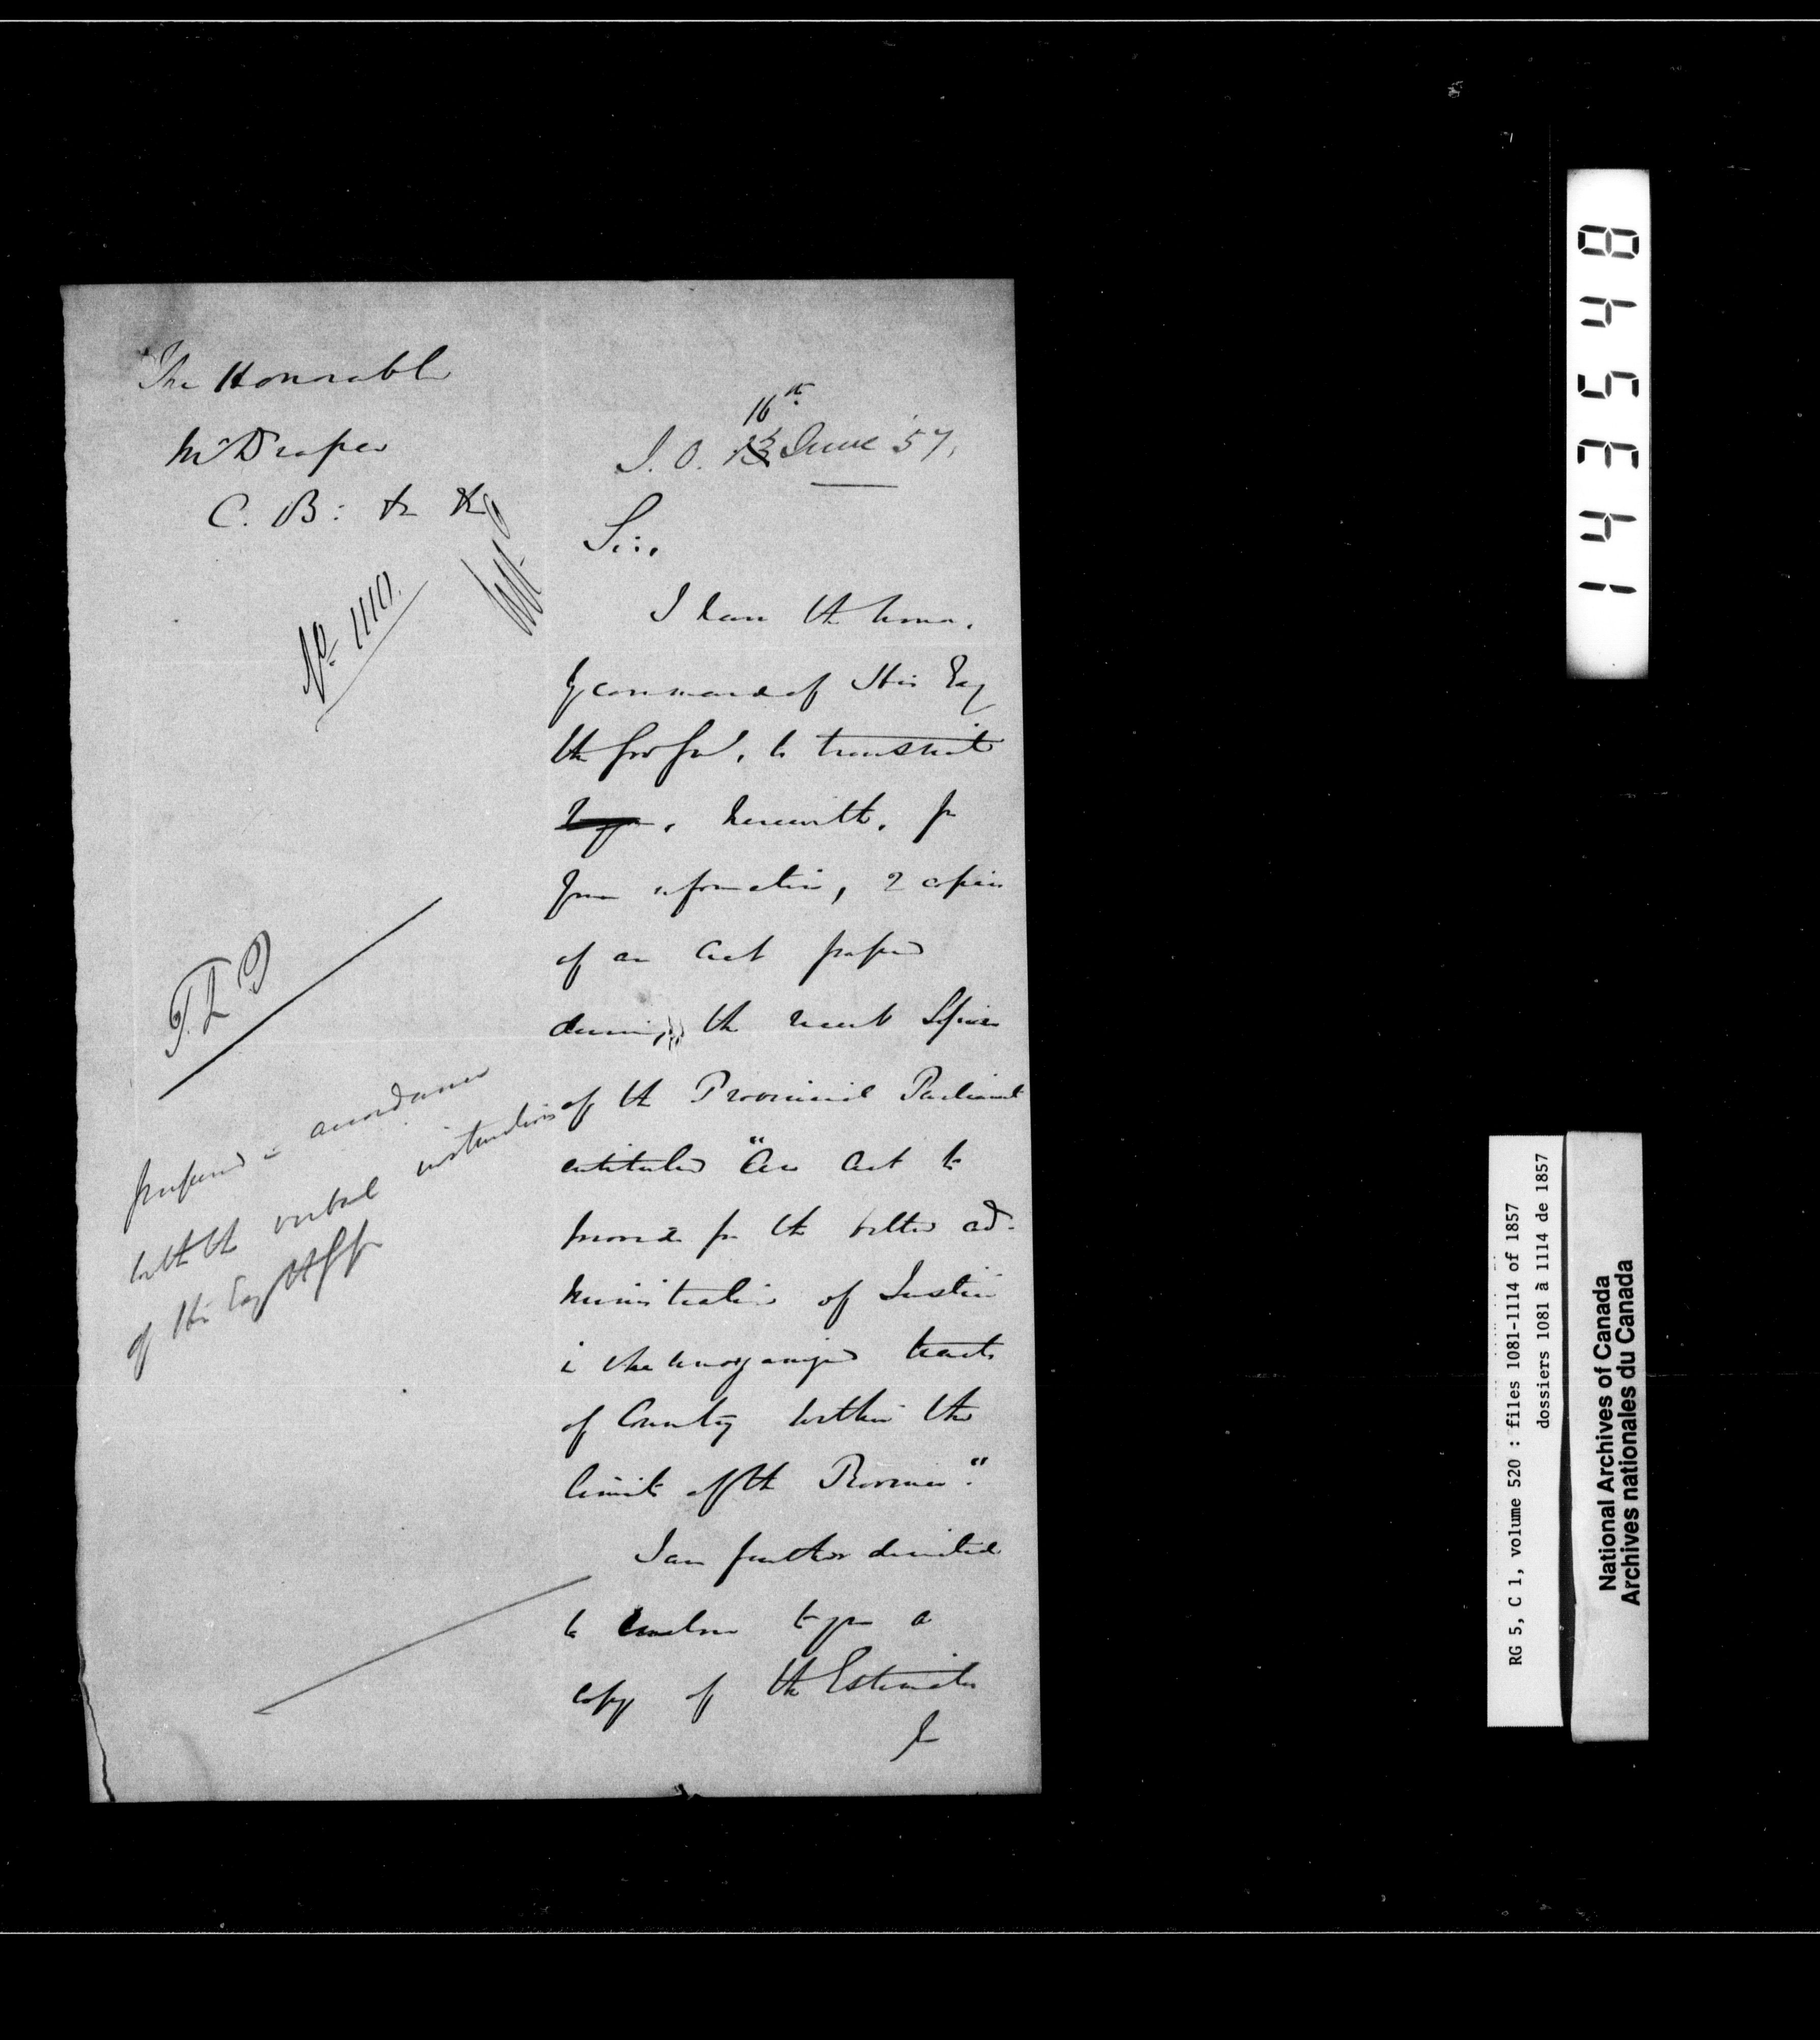 The Honorable
Mr Draper
C. B: &c &c
No. 1110.
16th
S. O. 13 June 57.
Sir,
I have the honor,
by command of His Exy
the Gov Genl, to transmit
to you, herewith, for
your information, 2 copies
of an Act passed
during the recent Session
of the Provincial Parliament
entituled "An Act to
provide for the better ad-
ministration of Justice
in the unorganized tracts
of Country within the
limits of the Province".
I am further directed
to enclose to you a
copy of the Estimates
for
T. L. D
prepared in accordance
with the verbal instructions
of His Exy the
143548
RG 5, C 1, volume 520 : files 1081-1114 of 1857
dossiers 1081 à 1114 de 1857
National Archives of Canada
Archives nationales du Canada